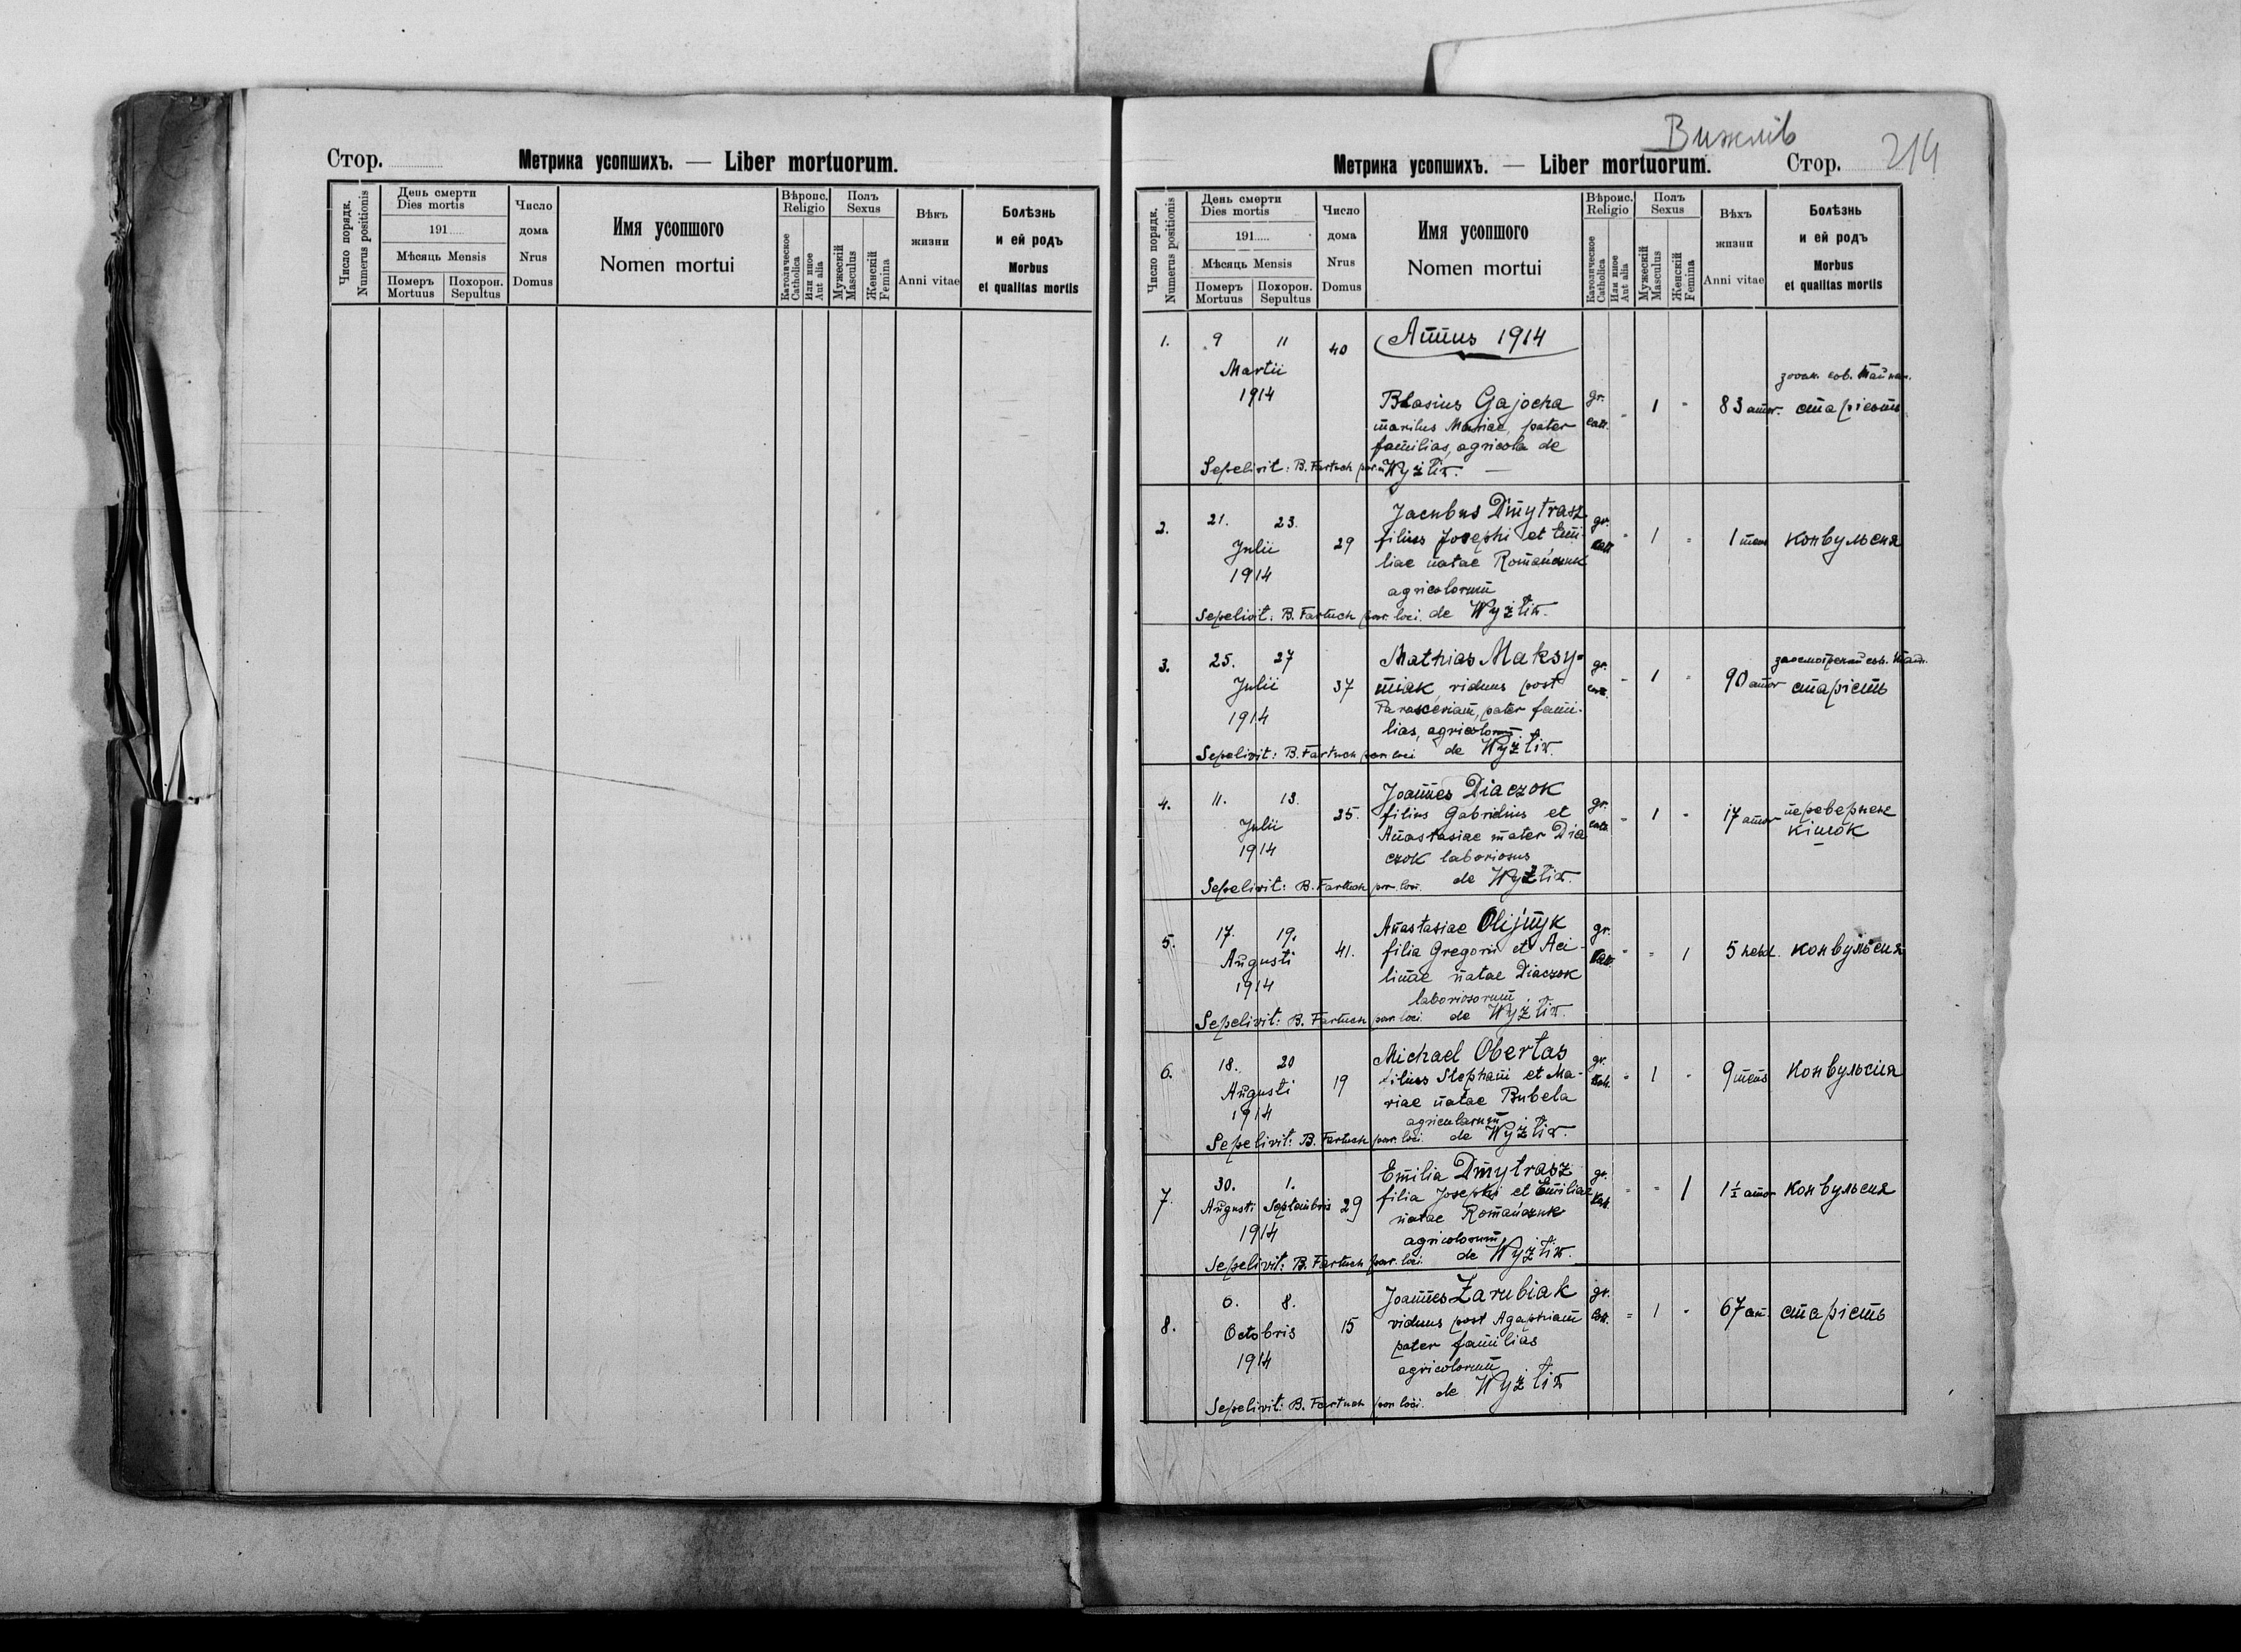 Стор.
Метрика усопшихъ. — Liber mortuorum.
Число порядк.
Numerus positionis
День смерти
Dies mortis
191
Мѣсяць Mensis
Померъ
Mortuus
Похорон.
Sepultus
Число
дома
Nrus
Domus
Имя усопшого
Nomen mortui
Вѣроис.
Religio
Католическое
Catholica
Или иное
Aut alia
Полъ
Sexus
Мужескій
Masculus
Женскій
Femina
Вѣкъ
жизни
Anni vitae
Болѣзнь
и ей родъ
Morbus
et qualitas mortis
Вижлів
Метрика усопшихъ. — Liber mortuorum.
Стор. 214
Число порядк.
Numerus positionis
День смерти
Dies mortis
191
Мѣсяць Mensis
Померъ
Mortuus
Похорон.
Sepultus
Число
дома
Nrus
Domus
Имя усопшого
Nomen mortui
Вѣроис.
Religio
Католическое
Catholica
Или иное
Aut alia
Полъ
Sexus
Мужескій
Masculus
Женскій
Femina
Вѣхъ
жизни
Anni vitae
Болѣзнь
и ей родъ
Morbus
et qualitas mortis
Annus 1914
1. 9 11 40
Martii
1914
Blasius Gajocha gr. - 1 - 83 annor. старість
maritus Mariae, pater cath.
familias, agricola de
Sepelivit: B. Fartuch Wyżłiw. —
Jacubus Dmytrasz
2. 21. 23. 29 filius Josephi et Emi- gr. cath. - 1 - 1 mens конвульсия
Julii
liae natae Romańczuk
1914
agricolorum
Sepelivit: B. Fartuch par. loci. de Wyżłiw.
Mathias Maksy-
3. 25. 27 37 miak, viduus post gr. cath. - 1 - 90 annor старість
Julii
Parasceviam, pater fami-
1914
lias, agricolorum
Sepelivit: B. Fartuch par. loci de Wyżłiw.
Joannes Diaczok
4. 11. 13. 35. filius Gabrielius et gr. cath. - 1 - 17 annor перевернене
кішок
Julii
Anastasiae mater Dia
1914
czok laboriosus
Sepelivit: B. Fartuch par. loci. de Wyżłiw.
Anastasiae Olijnyk
5. 17. 19. 41. filia Gregorii et Aci- gr. cath. - - 1 5 hebd. конвульсия
Augusti
linae natae Diaczok
1914
laboriosorum
Sepelivit: B. Fartuch par. loci. de Wyżłiw.
Michael Obertas
6. 18. 20 19 filius Stephani et Ma- gr. cath. - 1 - 9 mens Конвульсия
Augusti
riae natae Bubela
1914
agricolarum
Sepelivit: B. Fartuch par. loci. de Wyżłiw.
Emilia Dmytrasz
7. 30. 1. 29 filia Josephi et Emiliae gr. cath. - - 1 1½ annor Конвульсия
Augusti Septembris
natae Romańczuk
1914
agricolorum
Sepelivit: B. Fartuch par. loci. de Wyżłiw.
Joannes Zarubiak
8. 6. 8. 15 viduus post Agaphiam gr. cath. - 1 - 67 an. старість
Octobris
pater familias
1914
agricolorum
de Wyżłiw
Sepelivit: B. Fartuch par loci.